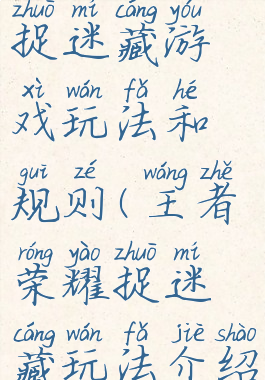 zhuō mí cáng yóu
捉迷藏游
xì wán fǎ hé
戏玩法和
guī zé wáng zhě
规则(王者
róng yào zhuō mí
荣耀捉迷
cáng wán fǎ jiè shào
藏玩法介绍